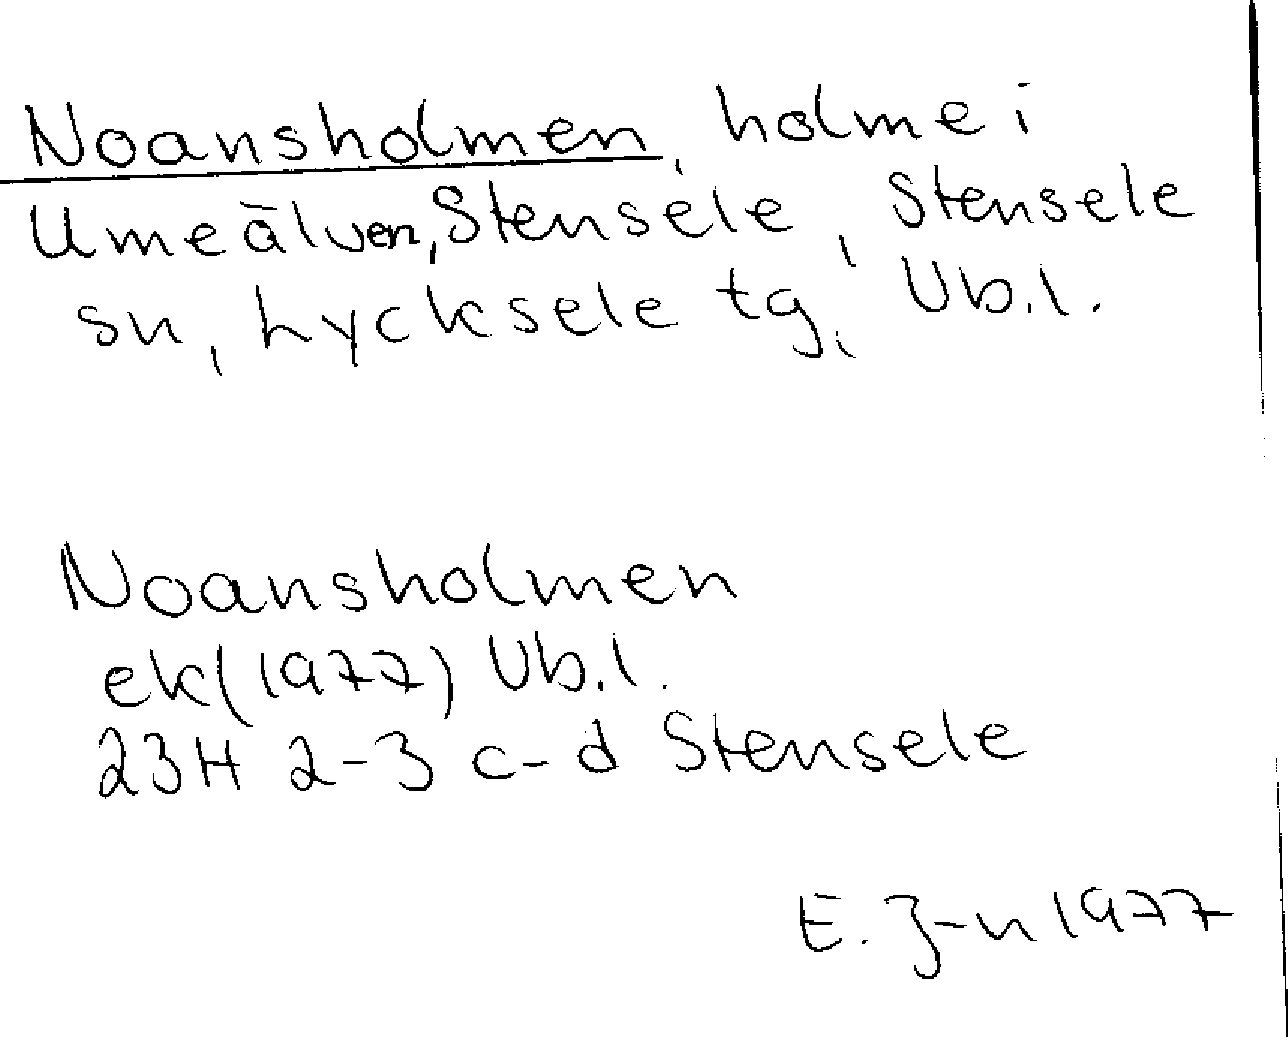 Noansholmen, holme i
Umeälven, Stensele, Stensele
sn, Lycksele tg, Vb.l.
Noansholmen
ek (1977) Vb.l.
23H 2-3 c-d Stensele
E. J-n 1977